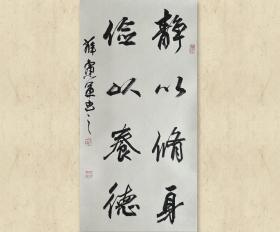 静以脩身
俭以养德